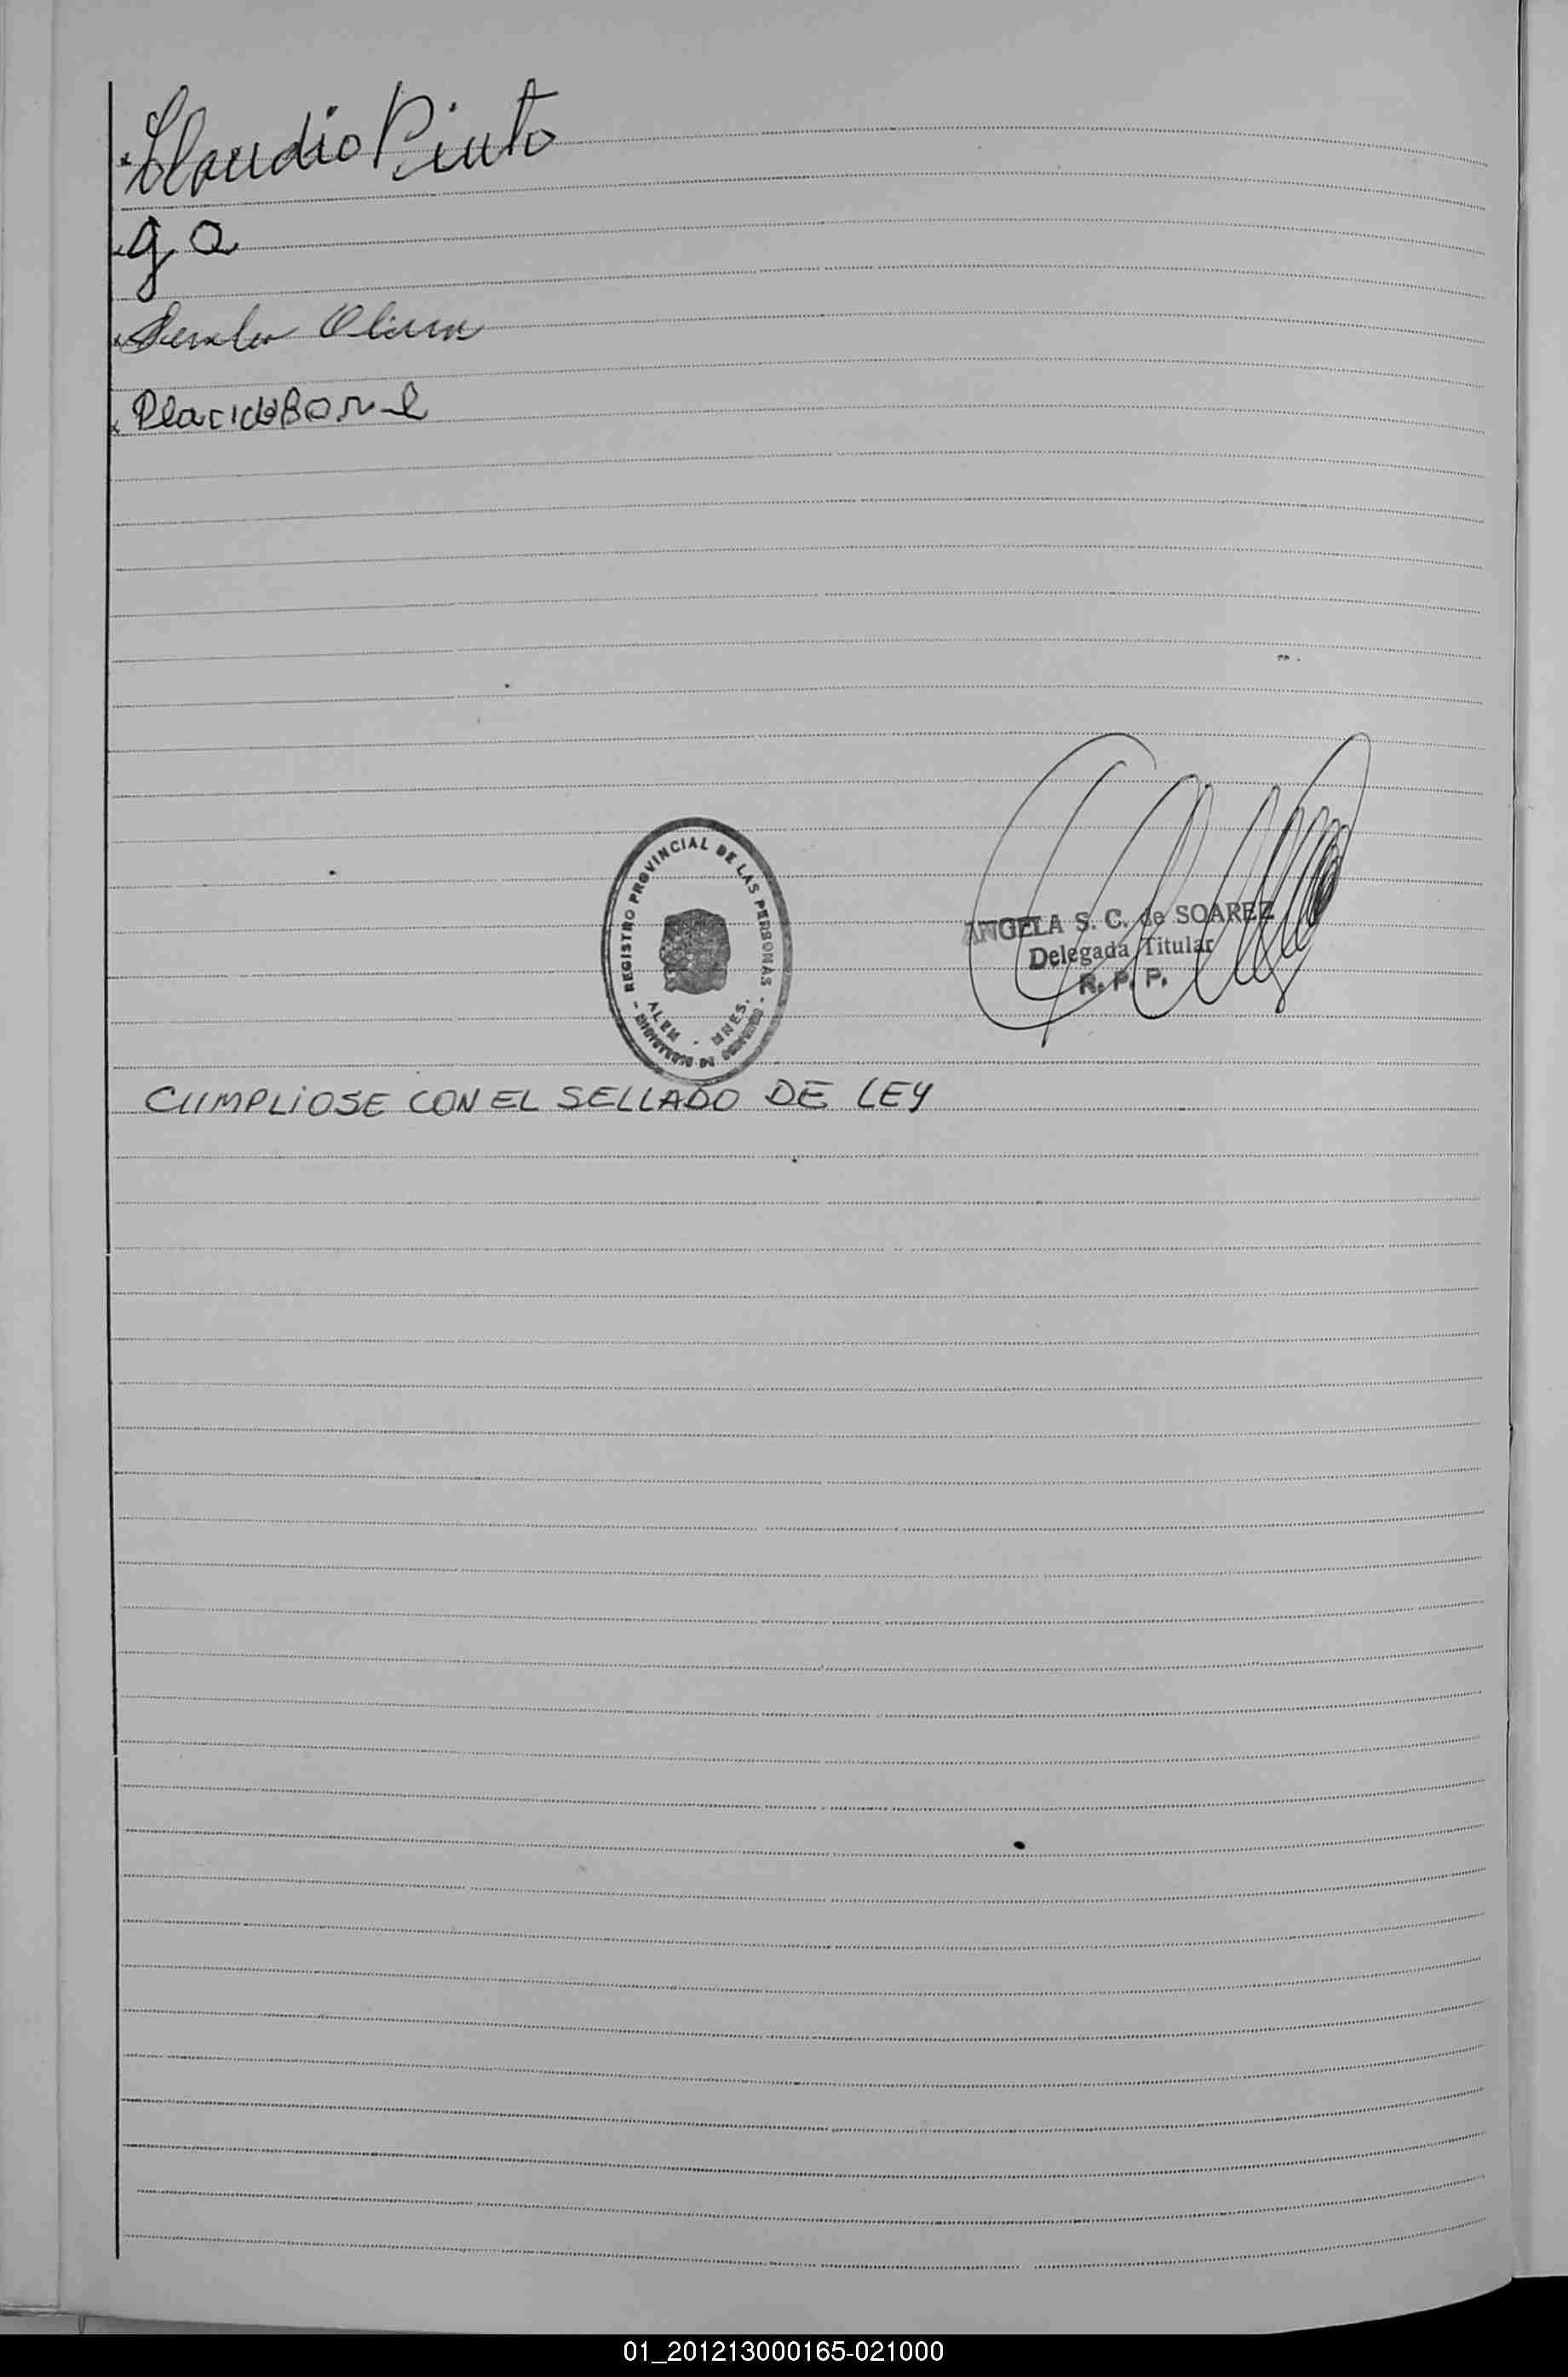 Claudio Pinto
g a
Olivera
Placido Bonel
REGISTRO PROVINCIAL DE LAS PERSONAS
ALEM - MNES.
MINISTERIO DE GOBIERNO
ANGELA S. C. de SOAREZ
Delegada Titular
R. P. P.
CUMPLIOSE CON EL SELLADO DE LEY
01_201213000165-021000